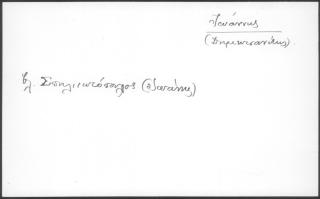 Ἰωάννης
(Δημητσανίτης).
βλ. Σπηλιωτόπουλος (Ἰωάννης)